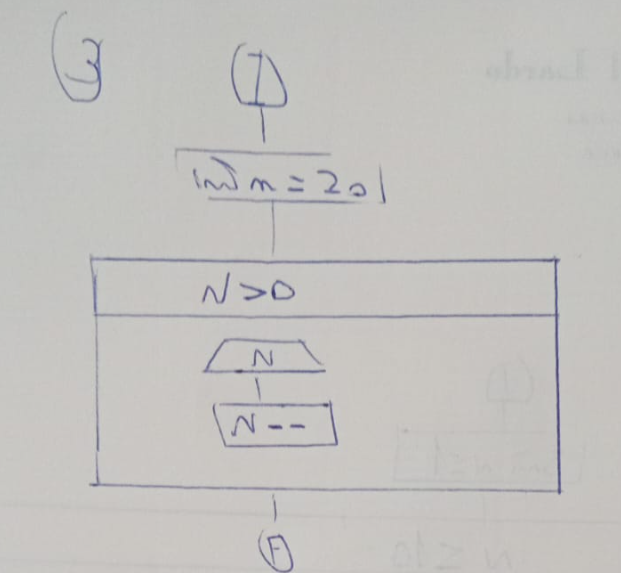 3
I
int n = 20
N > 0
N
N --
F